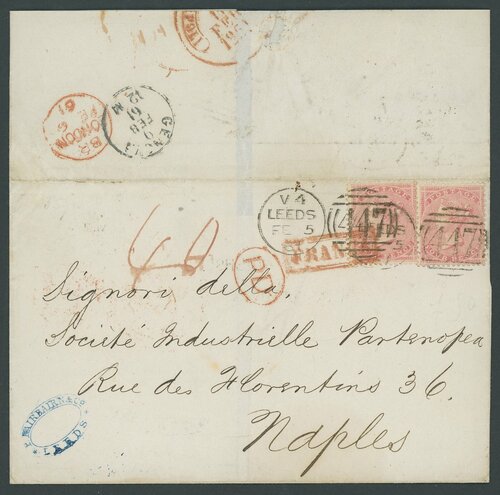 GENOVA
9
FEB
61
12 M
LONDON
FE 6
61
V4
LEEDS
FE 5
447
447
FRANCO
PD
Signori della.
Société Industrielle Partenopea
Rue des Florentins 36.
Naples
P. FAIRBAIRN & Co
LEEDS